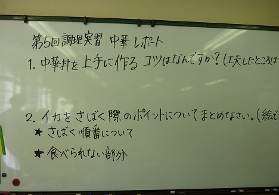 第5回調理実習 中華 レポート
1. 中華丼を上手に作るコツはなんですか?(工夫したところは
2. イカをさばく際のポイントについてまとめなさい。(絵で
★ さばく順番について
★ 食べられない部分